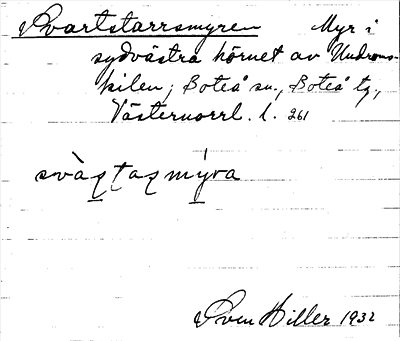 Svartstarrsmyren Myr i
sydvästra hörnet av Undroms-
kilen; Boteå sn., Boteå tg.,
Västernorrl. l. 261
svàrtarmýra
Sven Hiller 1932